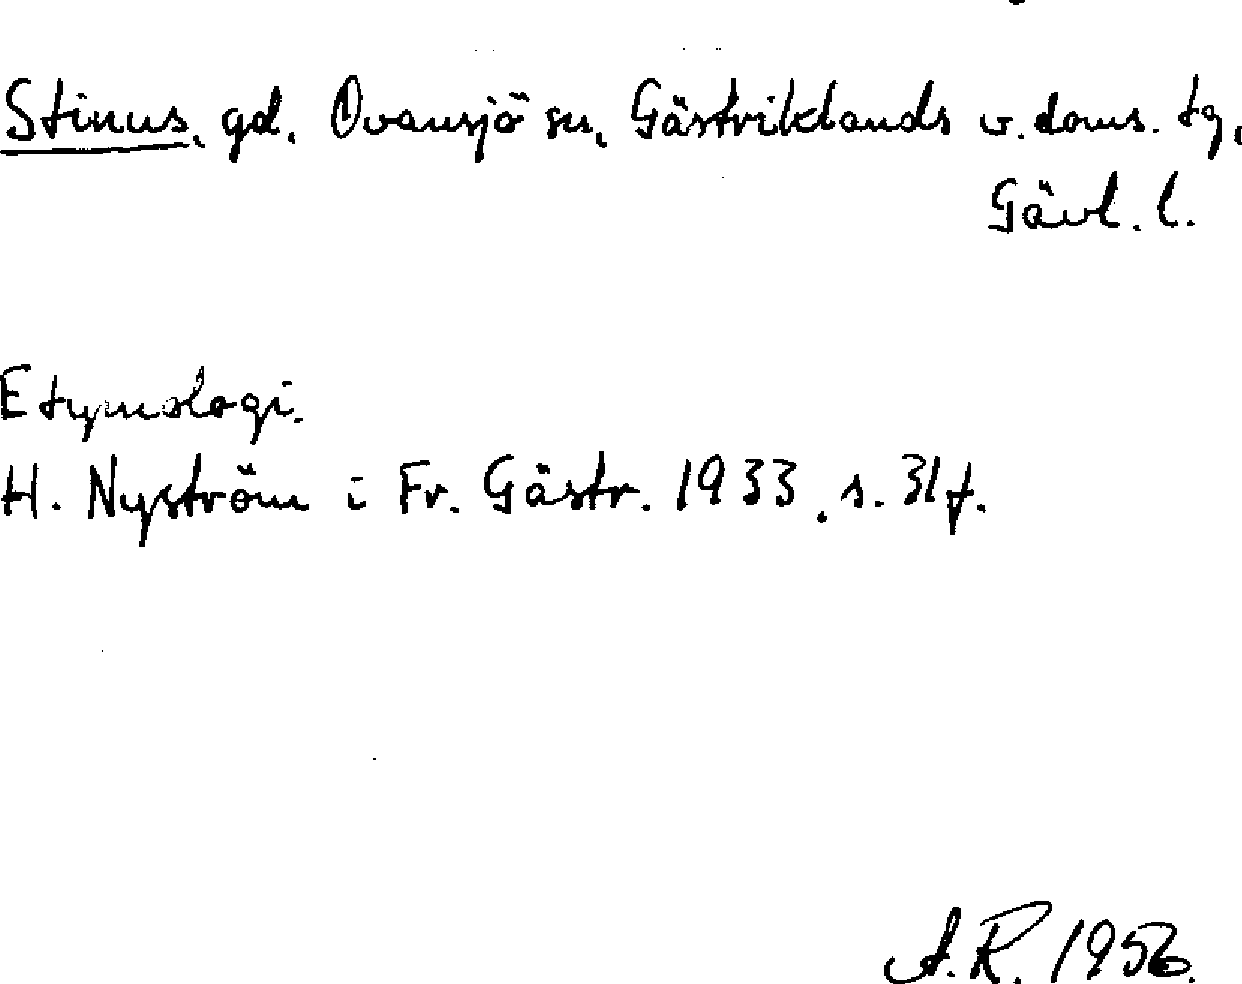 Stinus, gd. Ovansjö sn, Gästriklands v. doms. tg,
Gävl. l.
Etymologi.
H. Nyström i Fr. Gästr. 1933, s. 31 f.
A.R. 1956.